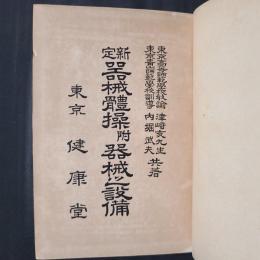 東京高等師範學校教諭 津崎亥九生
東京靑山師範學校訓導 内堀武夫 共著
新定 器械體操 附 器械之設備
東京 健康堂